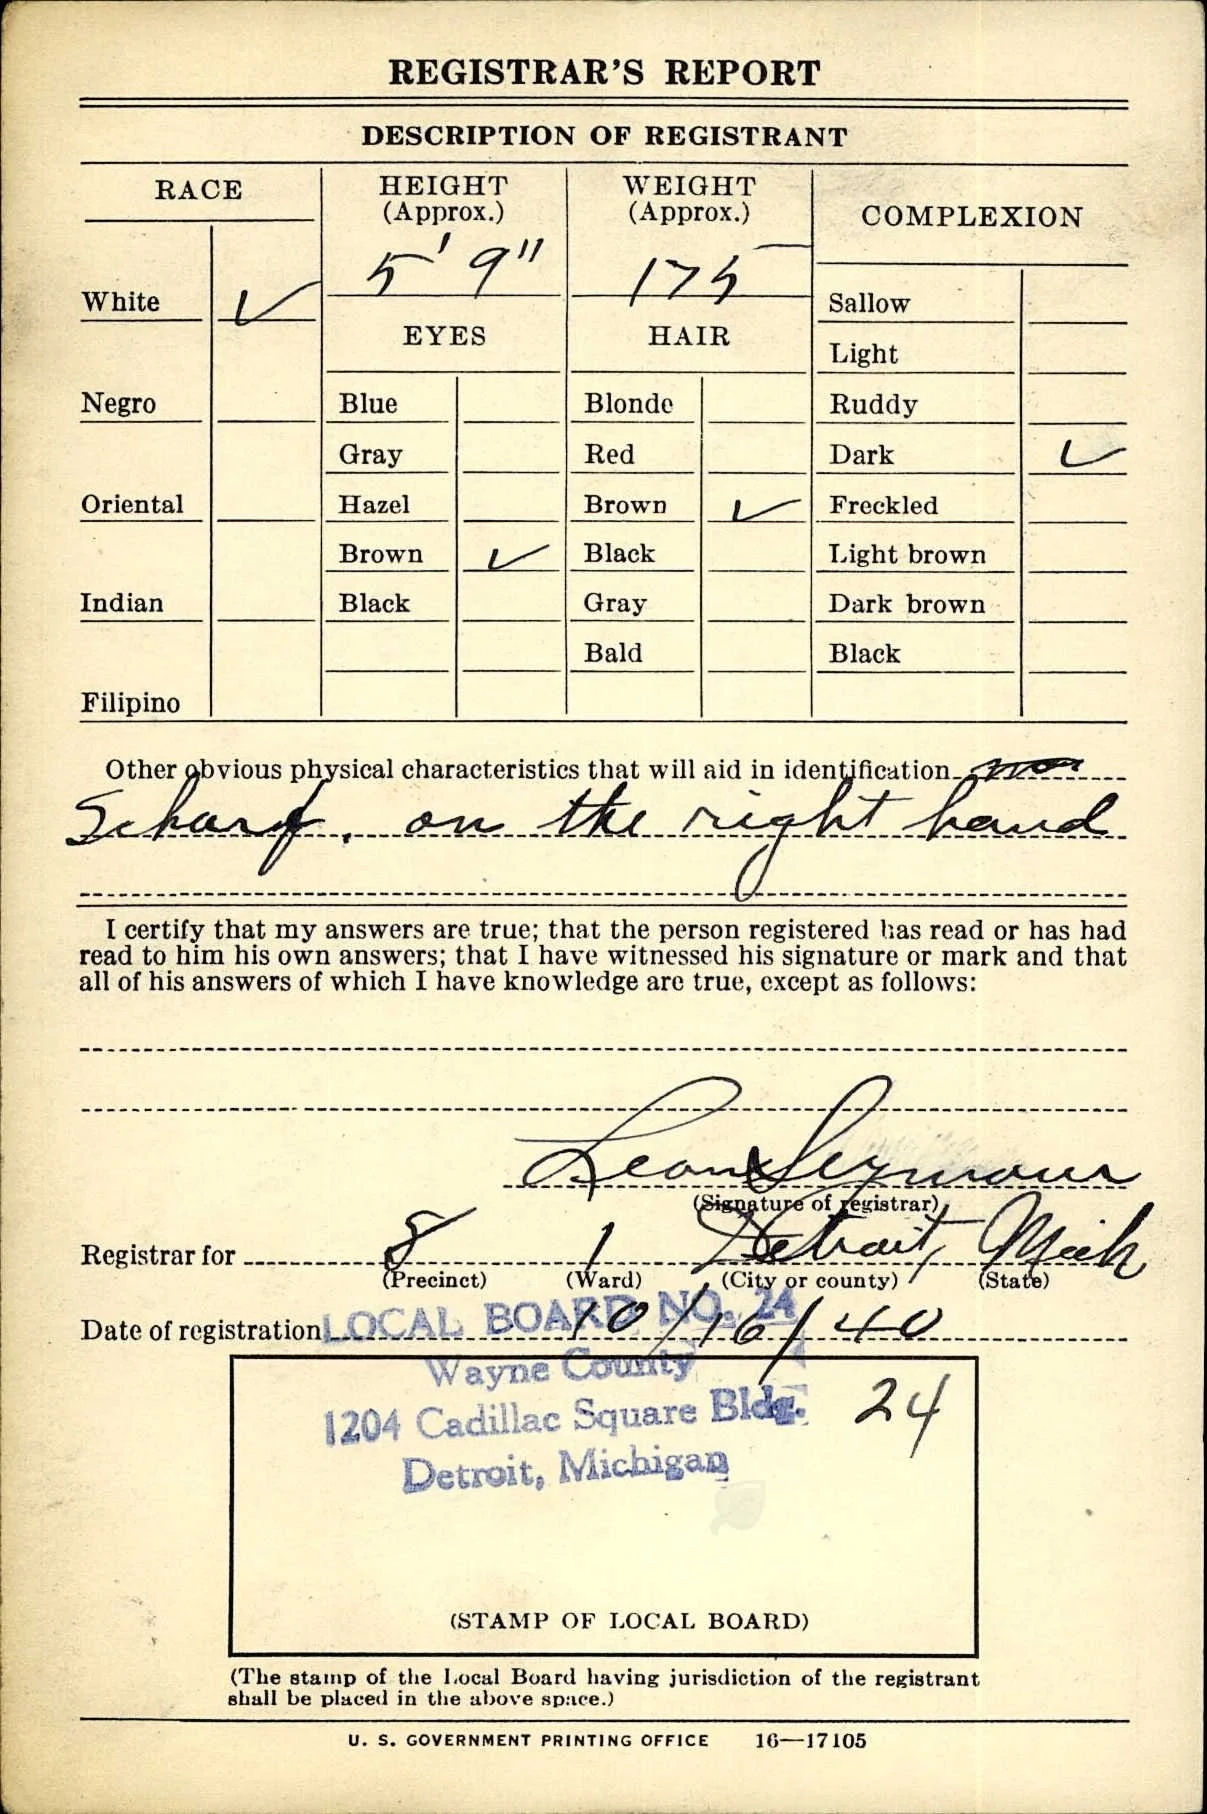 REGISTRAR'S REPORT
DESCRIPTION OF REGISTRANT
RACE
HEIGHT
(Approx.)
WEIGHT
(Approx.)
COMPLEXION
5' 9"
175
White ✓
EYES
HAIR
Sallow
Light
Negro
Blue
Blonde
Ruddy
Gray
Red
Dark ✓
Oriental
Hazel
Brown ✓
Freckled
Brown ✓
Black
Light brown
Indian
Black
Gray
Dark brown
Bald
Black
Filipino
Other obvious physical characteristics that will aid in identification
Scharf. on the right hand
I certify that my answers are true; that the person registered has read or has had
read to him his own answers; that I have witnessed his signature or mark and that
all of his answers of which I have knowledge are true, except as follows:
Leon Seymour
(Signature of registrar)
Registrar for 8 1 Detroit, Mich
(Precinct) (Ward) (City or county) (State)
Date of registration 10/16/40
LOCAL BOARD NO. 24
Wayne County
1204 Cadillac Square Bldg.
Detroit, Michigan
24
(STAMP OF LOCAL BOARD)
(The stamp of the Local Board having jurisdiction of the registrant
shall be placed in the above space.)
U. S. GOVERNMENT PRINTING OFFICE 16—17105